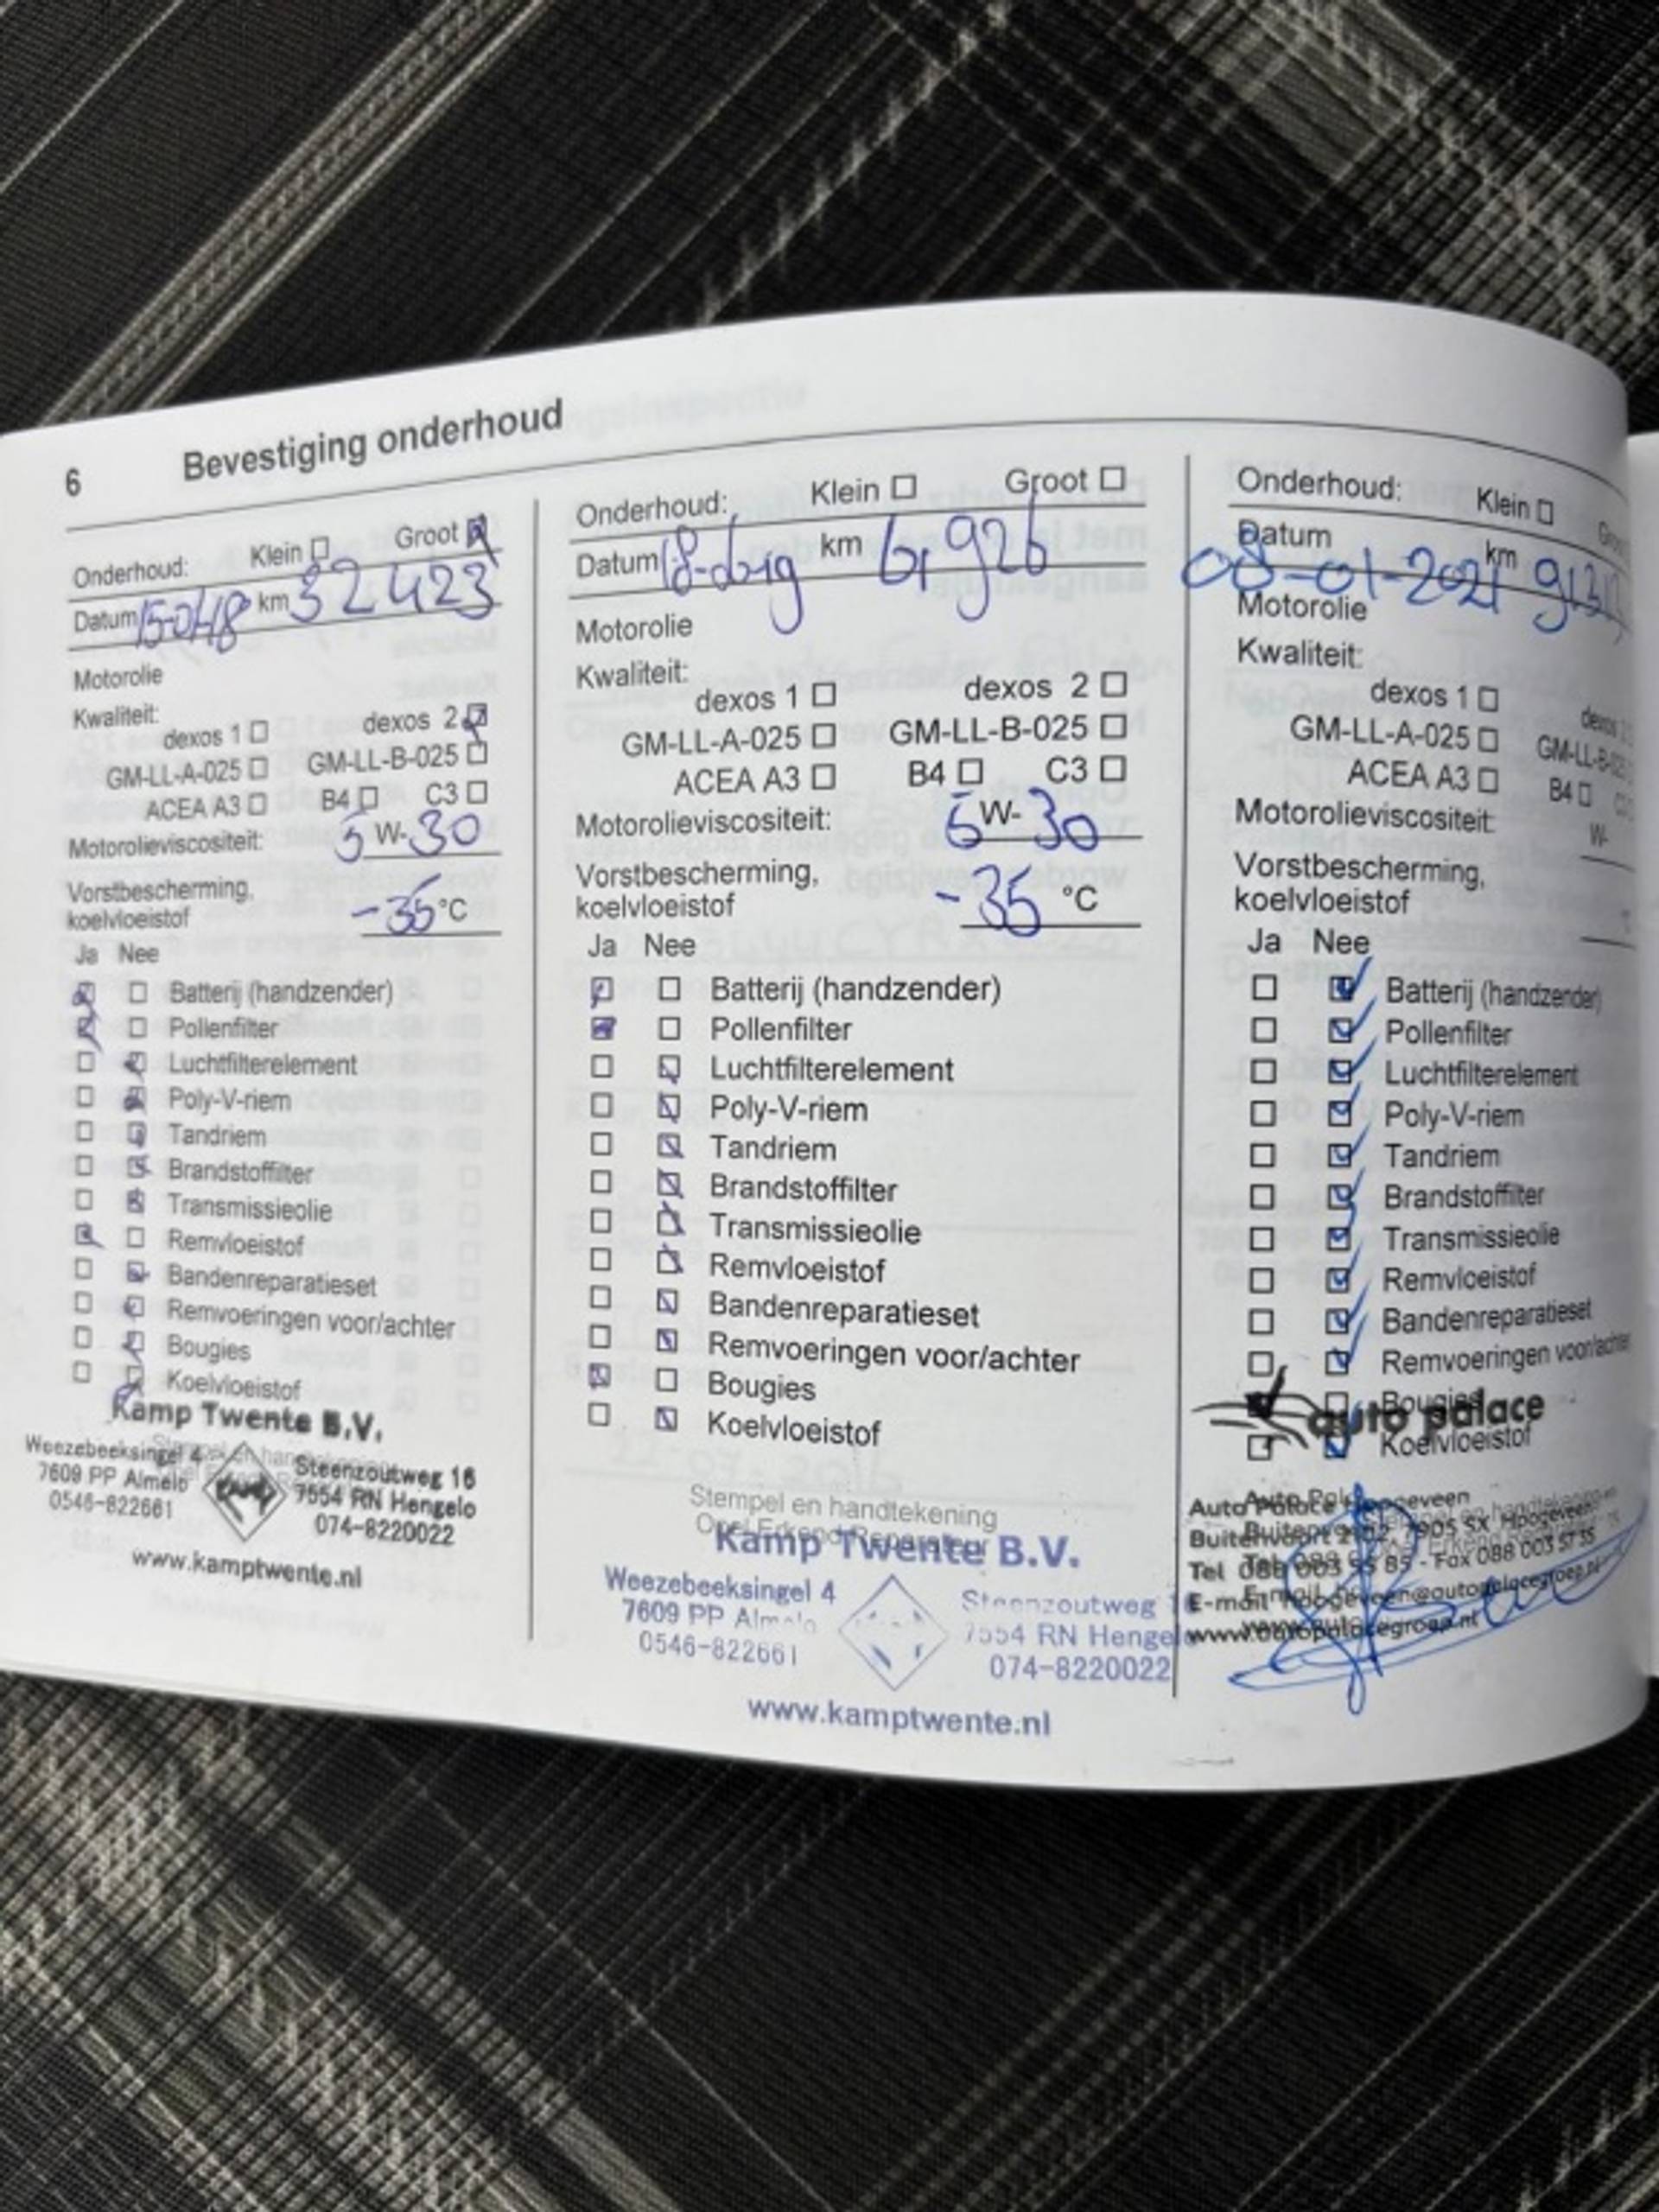 6 Bevestiging onderhoud
Onderhoud: Klein Groot
Datum km 32423
Motorolie
Kwaliteit:
dexos 1 dexos 2
GM-LL-A-025 GM-LL-B-025
ACEA A3 B4 C3
Motorolieviscositeit: 5 W- 30
Vorstbescherming,
koelvloeistof -35 °C
Ja Nee
Batterij (handzender)
Pollenfilter
Luchtfilterelement
Poly-V-riem
Tandriem
Brandstoffilter
Transmissieolie
Remvloeistof
Bandenreparatieset
Remvoeringen voor/achter
Bougies
Koelvloeistof
Kamp Twente B.V.
Weezebeeksingel 4
7609 PP Almelo
0546-822661
Steenzoutweg 16
7554 RN Hengelo
074-8220022
www.kamptwente.nl
Onderhoud: Klein Groot
Datum km 61926
Motorolie
Kwaliteit:
dexos 1 dexos 2
GM-LL-A-025 GM-LL-B-025
ACEA A3 B4 C3
Motorolieviscositeit: 5 W- 30
Vorstbescherming,
koelvloeistof -35 °C
Ja Nee
Batterij (handzender)
Pollenfilter
Luchtfilterelement
Poly-V-riem
Tandriem
Brandstoffilter
Transmissieolie
Remvloeistof
Bandenreparatieset
Remvoeringen voor/achter
Bougies
Koelvloeistof
Stempel en handtekening
Opel Erkend Reparateur
Kamp Twente B.V.
Weezebeeksingel 4
7609 PP Almelo
0546-822661
Steenzoutweg
7554 RN Hengelo
074-8220022
www.kamptwente.nl
Onderhoud: Klein
Datum 08-01-2021 km
Motorolie
Kwaliteit:
dexos 1 dexos
GM-LL-A-025 GM-LL-B-025
ACEA A3 B4
Motorolieviscositeit: W-
Vorstbescherming,
koelvloeistof
Ja Nee
Batterij (handzender)
Pollenfilter
Luchtfilterelement
Poly-V-riem
Tandriem
Brandstoffilter
Transmissieolie
Remvloeistof
Bandenreparatieset
Remvoeringen voor/achter
Bougies
auto palace
Koelvloeistof
Auto Palace Hoogeveen
Buitenvaart 7905 SX Hoogeveen
Tel 088 003 - Fax 088 003 57 35
E-mail hoogeveen@autopalacegroep.nl
www.autopalacegroep.nl